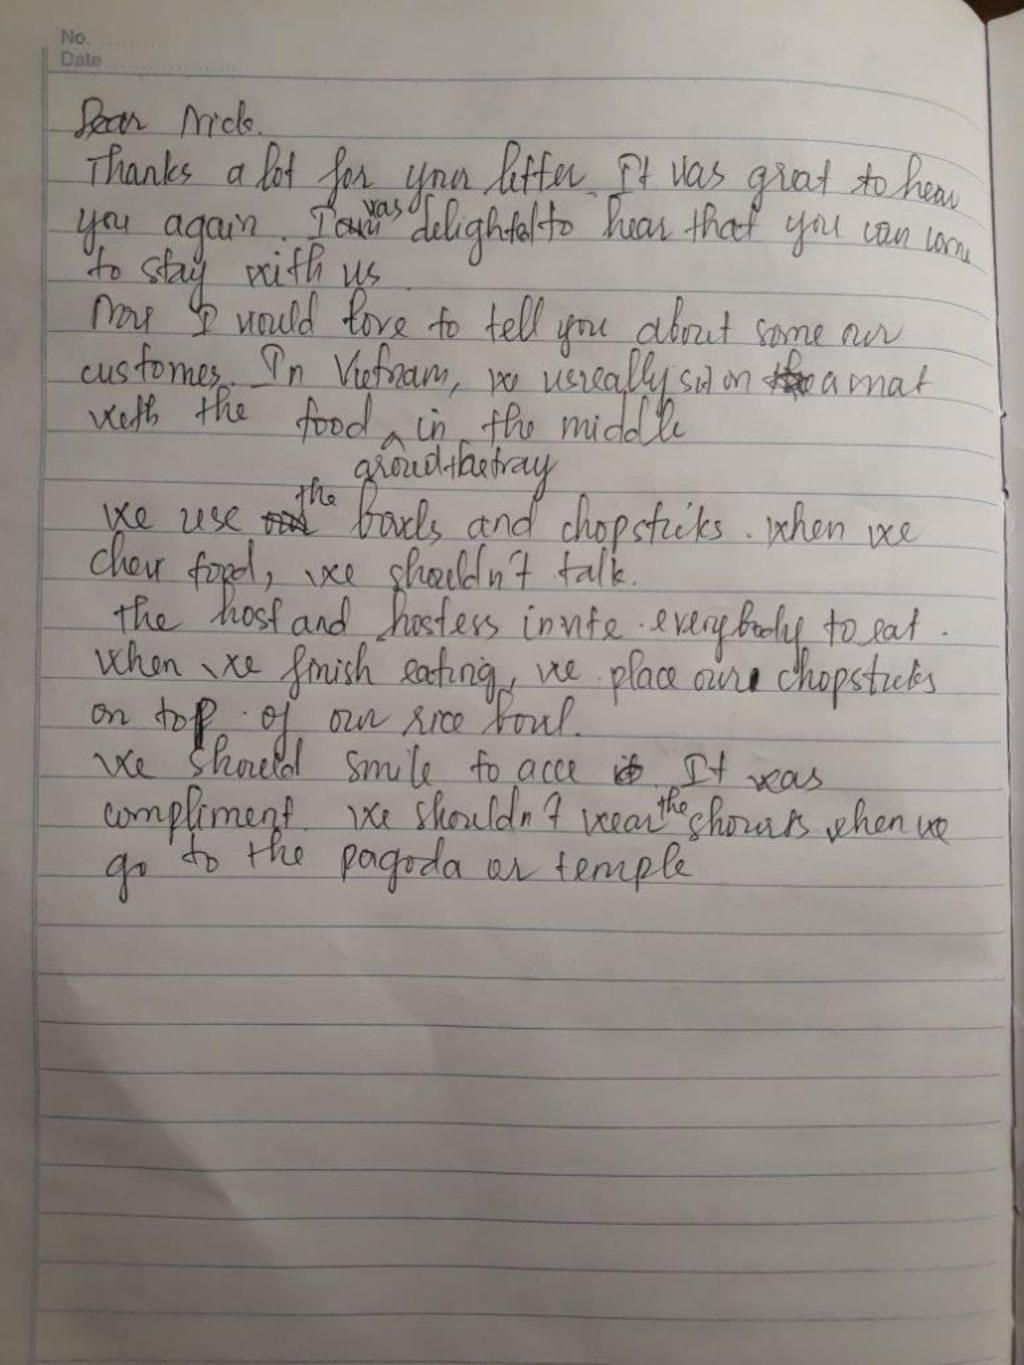 No.
Date
Dear Nick.
Thanks a lot for your letter. It was great to hear
you again. I was delighted to hear that you can come
to stay with us.
Now I would love to tell you about some our
customes. In Vietnam, we useually sit on a mat
with the food in the middle
aroud the tray
we use the bowls and chopsticks. when we
chew food, we shouldn't talk.
the host and hostess invite everybody to eat.
when we finish eating, we place our chopsticks
on top of our rice bowl.
we should smile to acce it. It was
compliment. we shouldn't wear the when we
go to the pagoda or temple